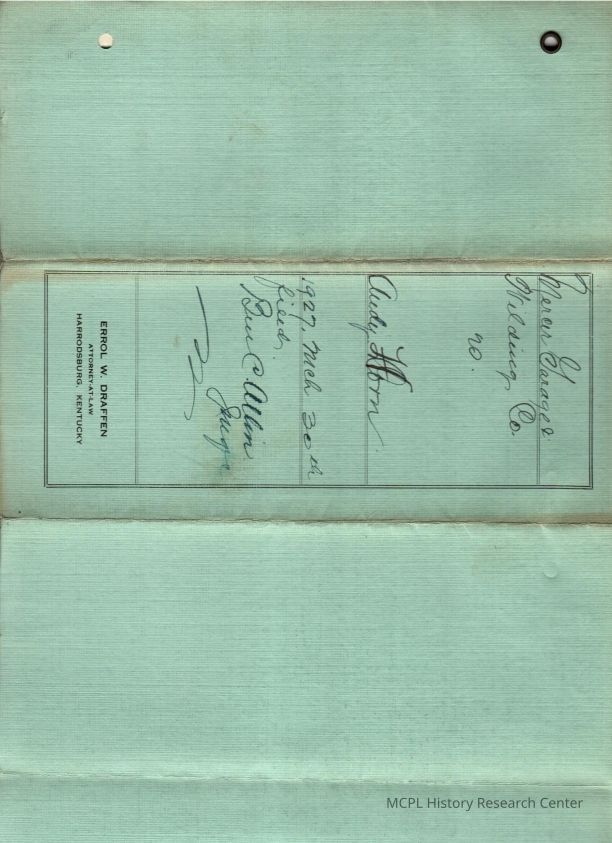 Mercer Garage &
Welding Co.
vs.
Andy Horn
1927, Mch 30th
filed.
Ben C Allin
Judge
ERROL W. DRAFFEN
ATTORNEY-AT-LAW
HARRODSBURG, KENTUCKY
MCPL History Research Center